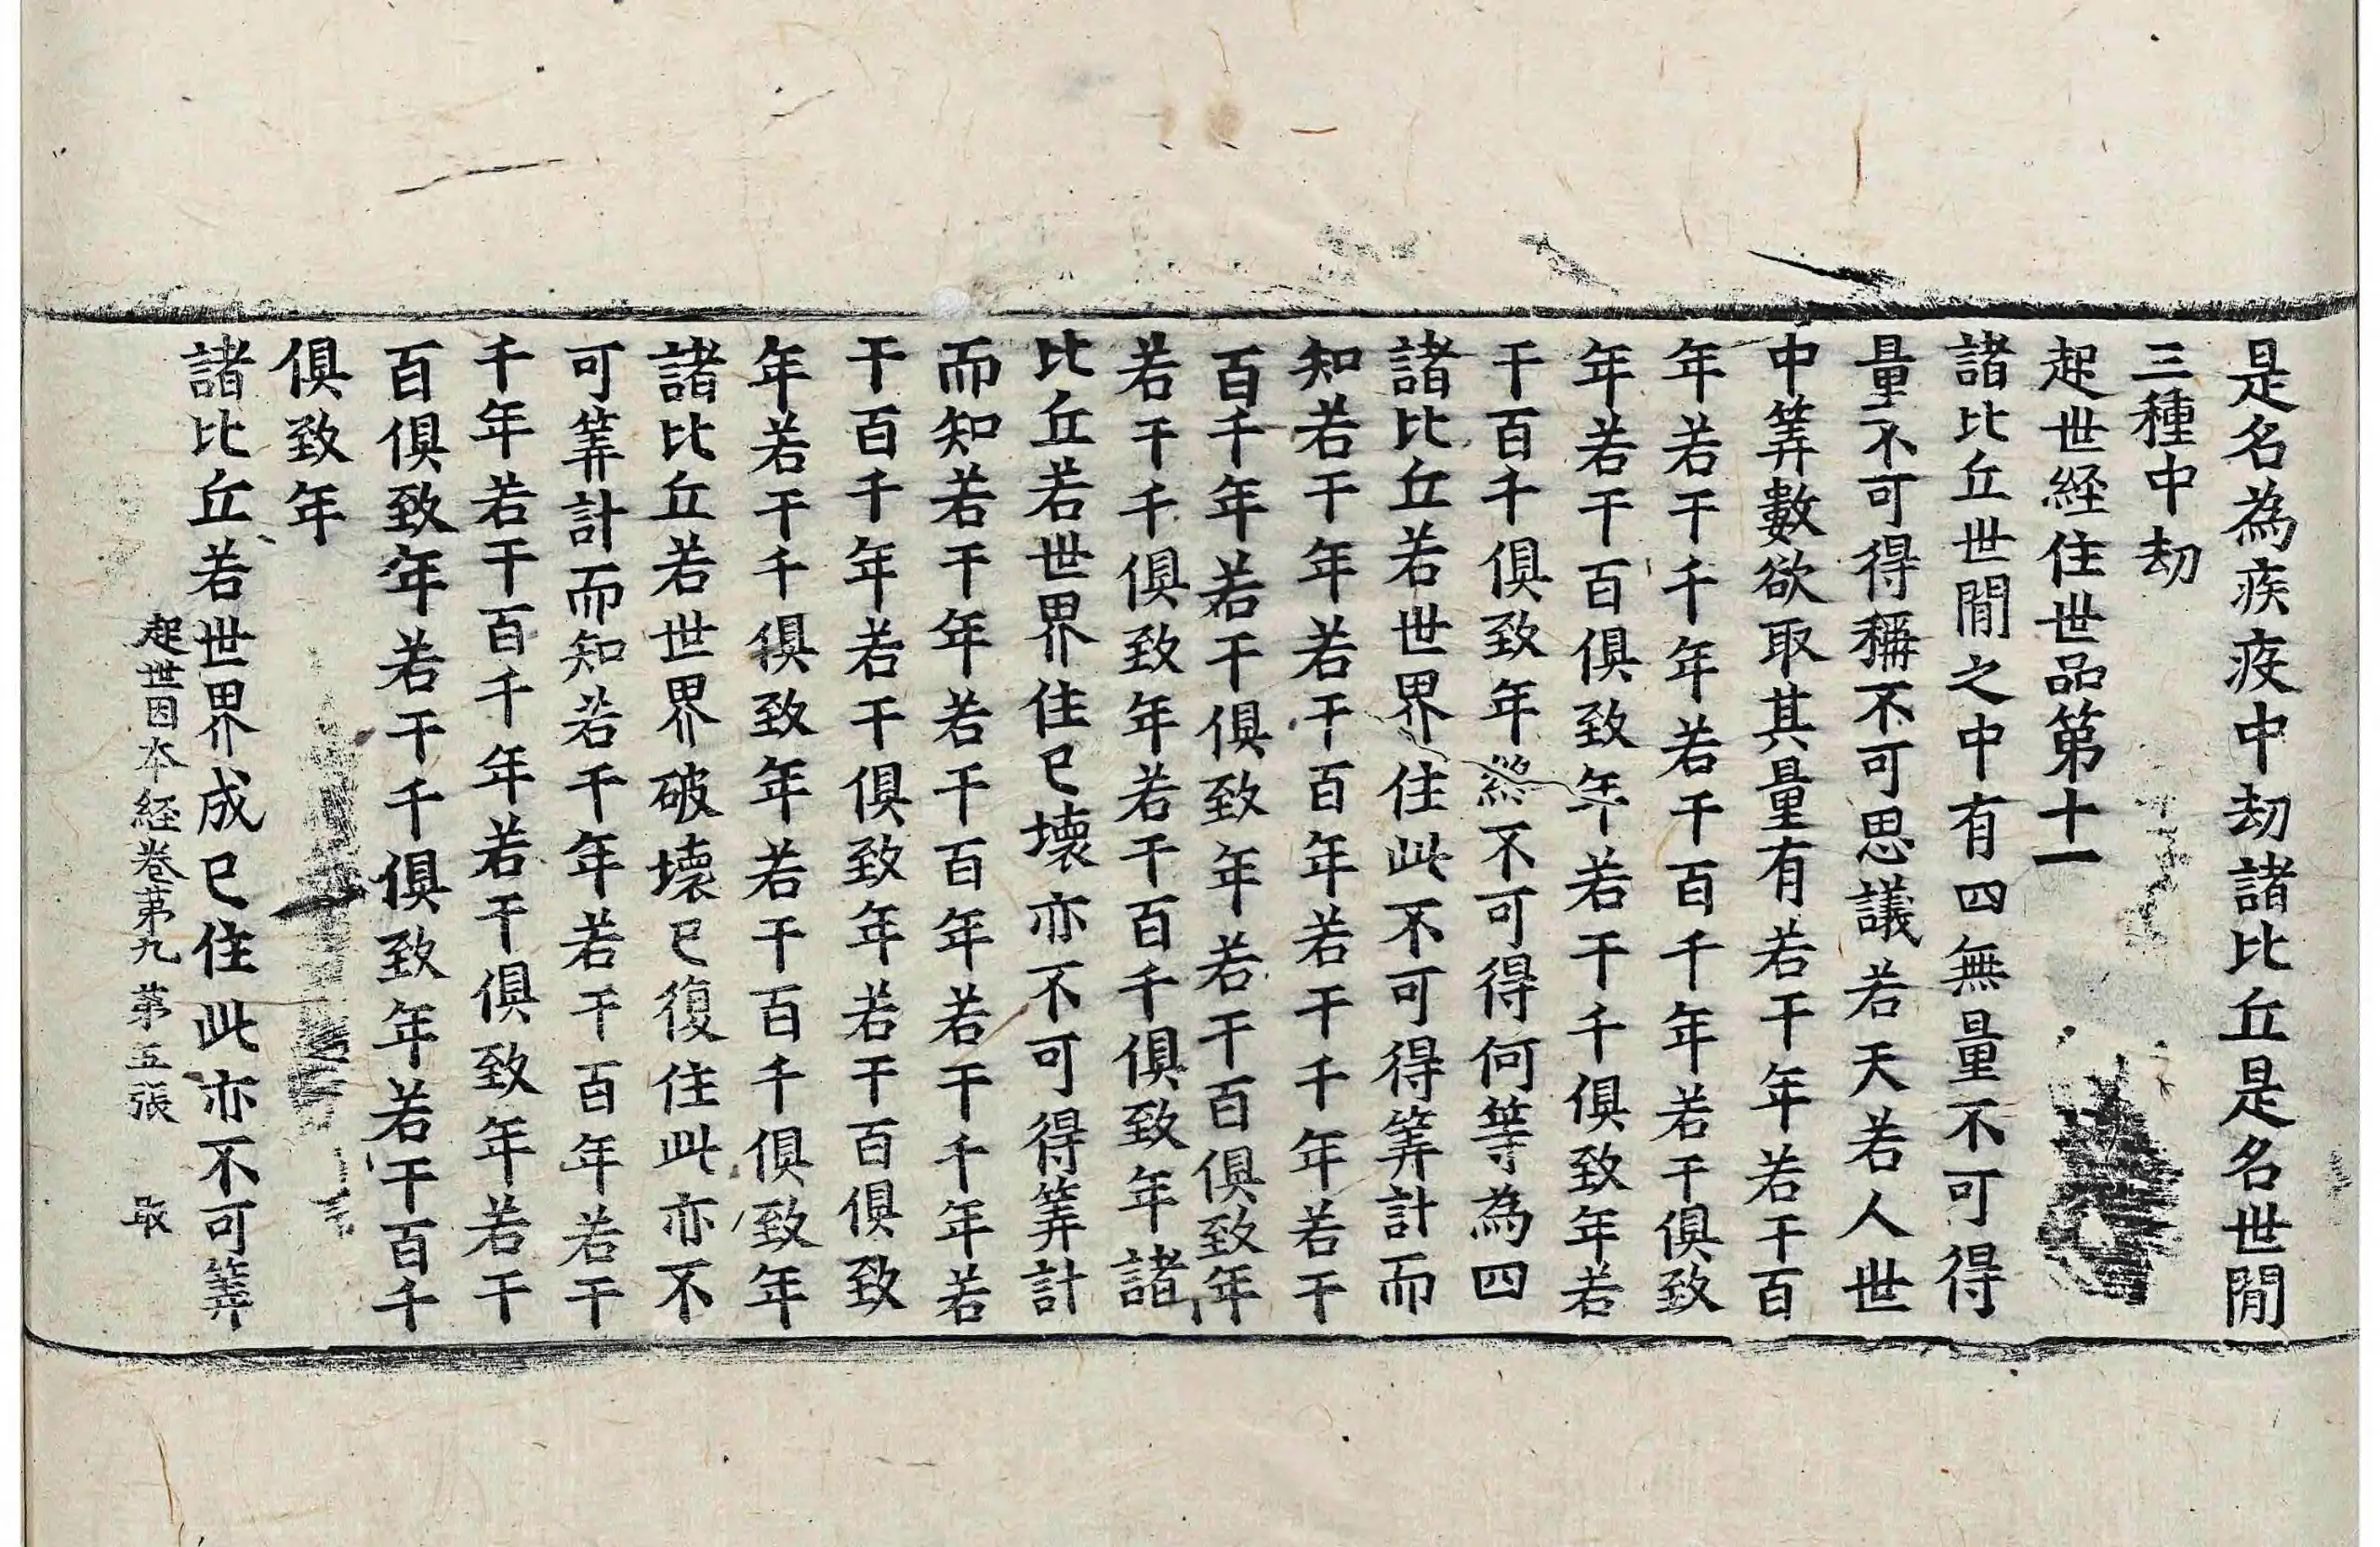 是名為疾疫中劫諸比丘是名世間
三種中劫
起世経住世品第十一
諸比丘世間之中有四無量不可得
量不可得稱不可思議若天若人世
中筭數欲取其量有若干年若干百
年若干千年若干百千年若干俱致
年若干百俱致年若干千俱致年若
干百千俱致年終不可得何等為四
諸比丘若世界住此不可得筭計而
知若干年若干百年若干千年若干
百千年若干俱致年若干百俱致年
若干千俱致年若干百千俱致年諸
比丘若世界住已壞亦不可得筭計
而知若干年若干百年若干千年若
干百千年若干俱致年若干百俱致
年若干千俱致年若干百千俱致年
諸比丘若世界破壞已復住此亦不
可筭計而知若干年若干百年若干
千年若干百千年若干俱致年若干
百俱致年若干千俱致年若干百千
俱致年
諸比丘若世界成已住此亦不可筭
起世因本經卷苐九 苐五張 取